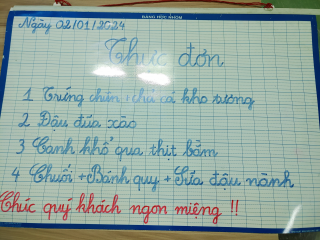 BẢNG HỌC NHÓM
Ngày 02/01/2024
Thực đơn
1 Trứng chiên + chả cá kho tương
2 Đậu đũa xào
3 Canh khổ qua thịt bằm
4 Chuối + Bánh quy + Sữa đậu nành
Chúc quý khách ngon miệng !!